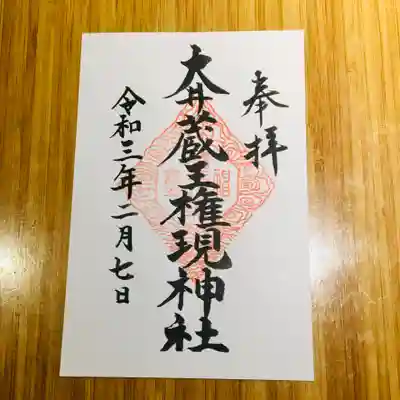 奉拝
大井蔵王権現神社
令和三年二月七日